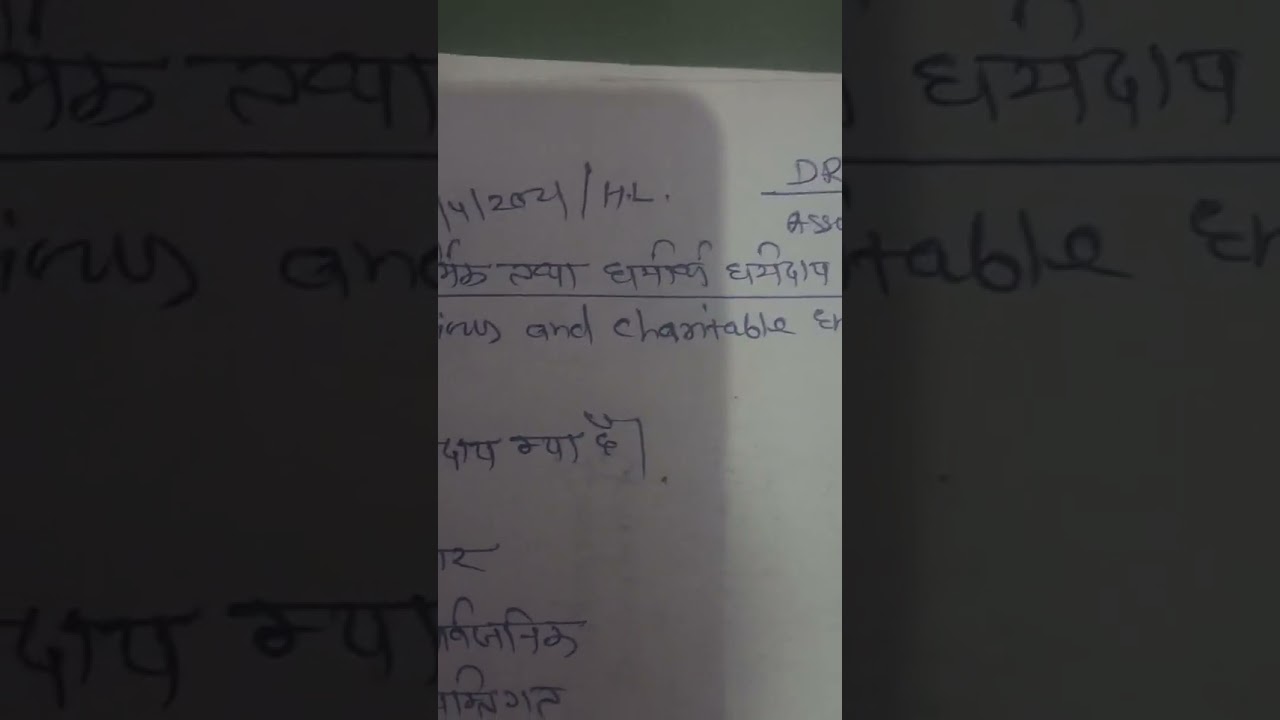 DR
/4/2021/H.L.
Asso
र्मिक तथा धर्मार्थ धर्मदाय
ious and charitable En
दाय क्या है।
ार
र्वजनिक
क्तिगत